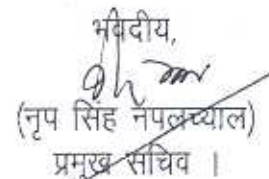 भवदीय,
(नृप सिंह नॅपलच्याल)
प्रमुख सचिव ।